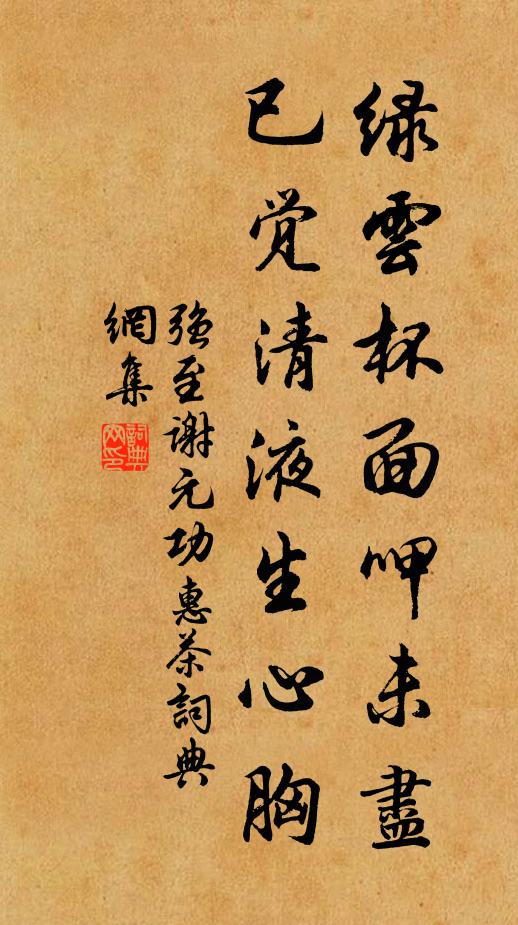 绿雲杯面呷未盡
已觉清液生心胸
强至谢元功惠茶詞典
網集
詞典网印